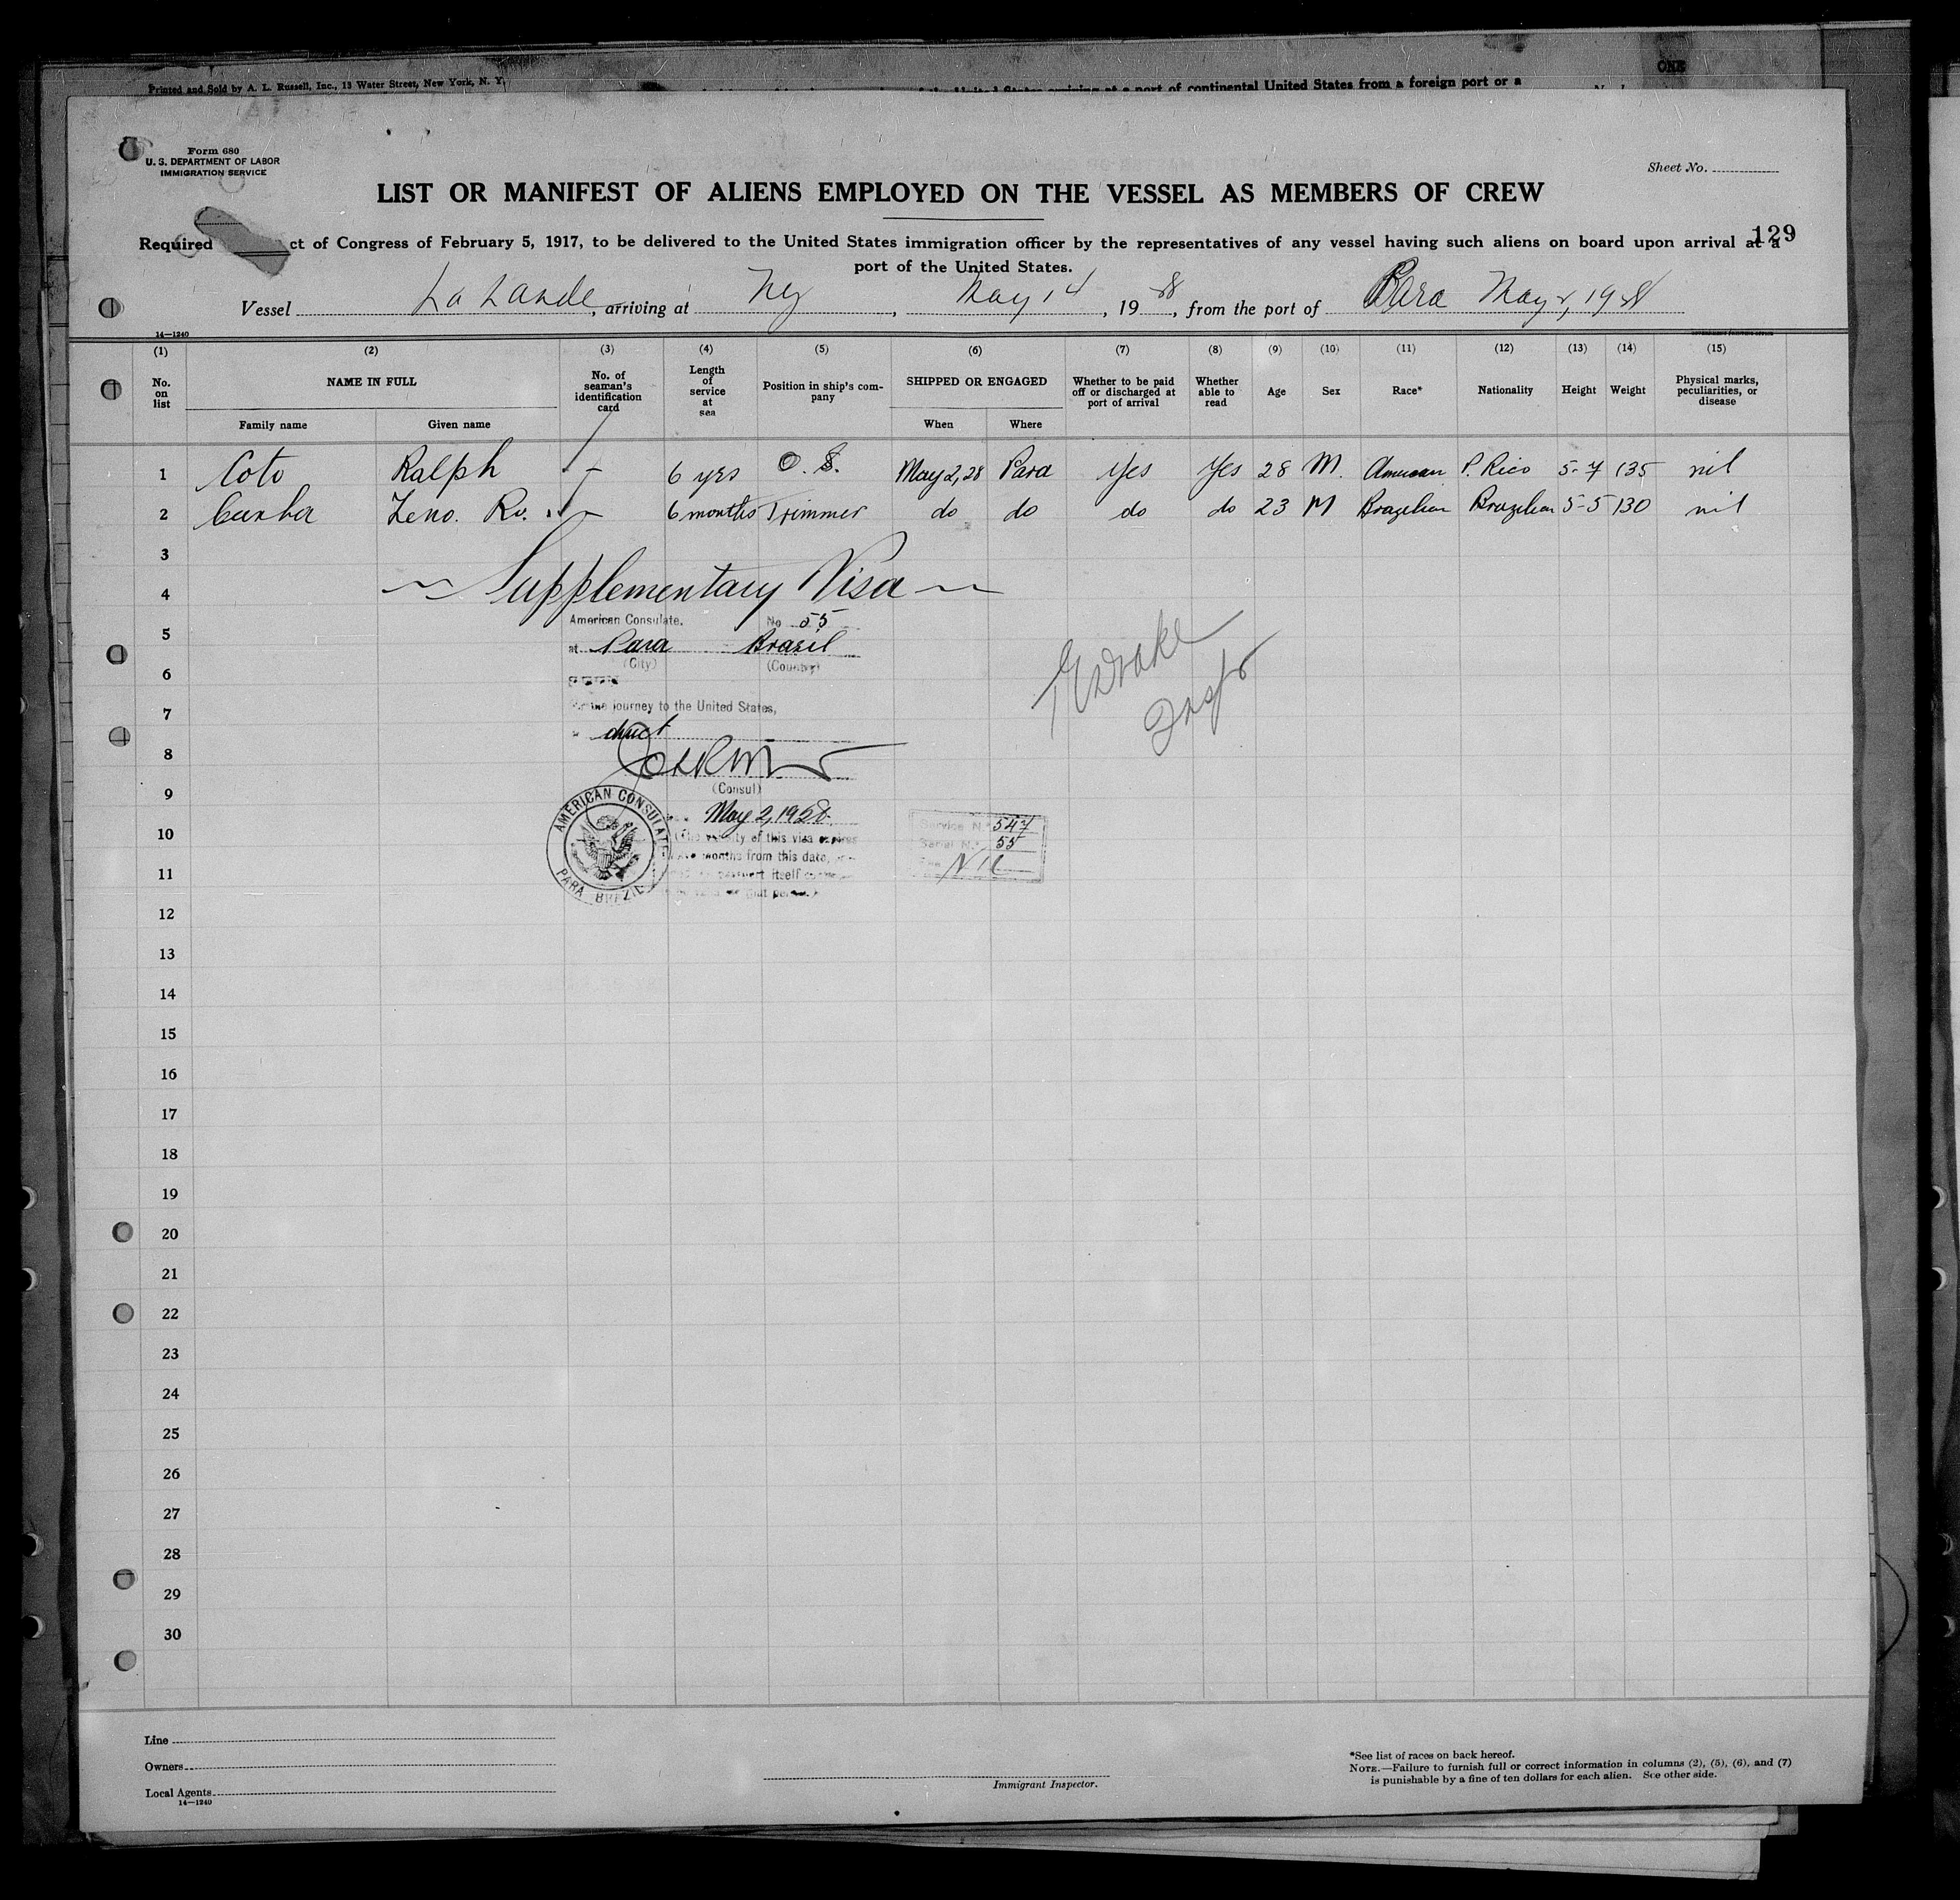 ONE
Printed and Sold by A. L. Russell, Inc., 13 Water Street, New York, N. Y.
a port of continental United States from a foreign port or a
Form 680
U. S. DEPARTMENT OF LABOR
IMMIGRATION SERVICE
Sheet No.
LIST OR MANIFEST OF ALIENS EMPLOYED ON THE VESSEL AS MEMBERS OF CREW
129
Required ct of Congress of February 5, 1917, to be delivered to the United States immigration officer by the representatives of any vessel having such aliens on board upon arrival at a
port of the United States.
Vessel La Lande, arriving at Ny, May 14, 1928, from the port of Para May 2, 1928
14—1240
(1) (2) (3) (4) (5) (6) (7) (8) (9) (10) (11) (12) (13) (14) (15)
No. on list NAME IN FULL No. of seaman's identification card Length of service at sea Position in ship's company SHIPPED OR ENGAGED Whether to be paid off or discharged at port of arrival Whether able to read Age Sex Race* Nationality Height Weight Physical marks, peculiarities, or disease
Family name Given name When Where
1 Coto Ralph — 6 yrs O. S. May 2, 28 Para Yes Yes 28 M. American P. Rico 5-7 135 nil
2 Cunha Zeno. — 6 months Trimmer do do do do 23 M Brazilian Brazilian 5-5 130 nil
3
4 Supplementary Visa
American Consulate. No 55
5
at Para Brazil
(City) (Country)
6
7
the journey to the United States,
direct
8
(Consul)
9
May 2, 1928.
AMERICAN CONSULATE
PARA BRAZIL
10
of this visa expires
months from this date,
11
itself
Drake
Inspr
Service No. 547
Serial No. 55
Fee Nil
12
13
14
15
16
17
18
19
20
21
22
23
24
25
26
27
28
29
30
Line
Owners
Local Agents
14—1240
Immigrant Inspector.
*See list of races on back hereof.
NOTE.—Failure to furnish full or correct information in columns (2), (5), (6), and (7)
is punishable by a fine of ten dollars for each alien. See other side.